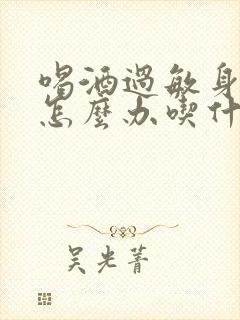 喝酒過敏身
怎麼办喫什
吴光菁